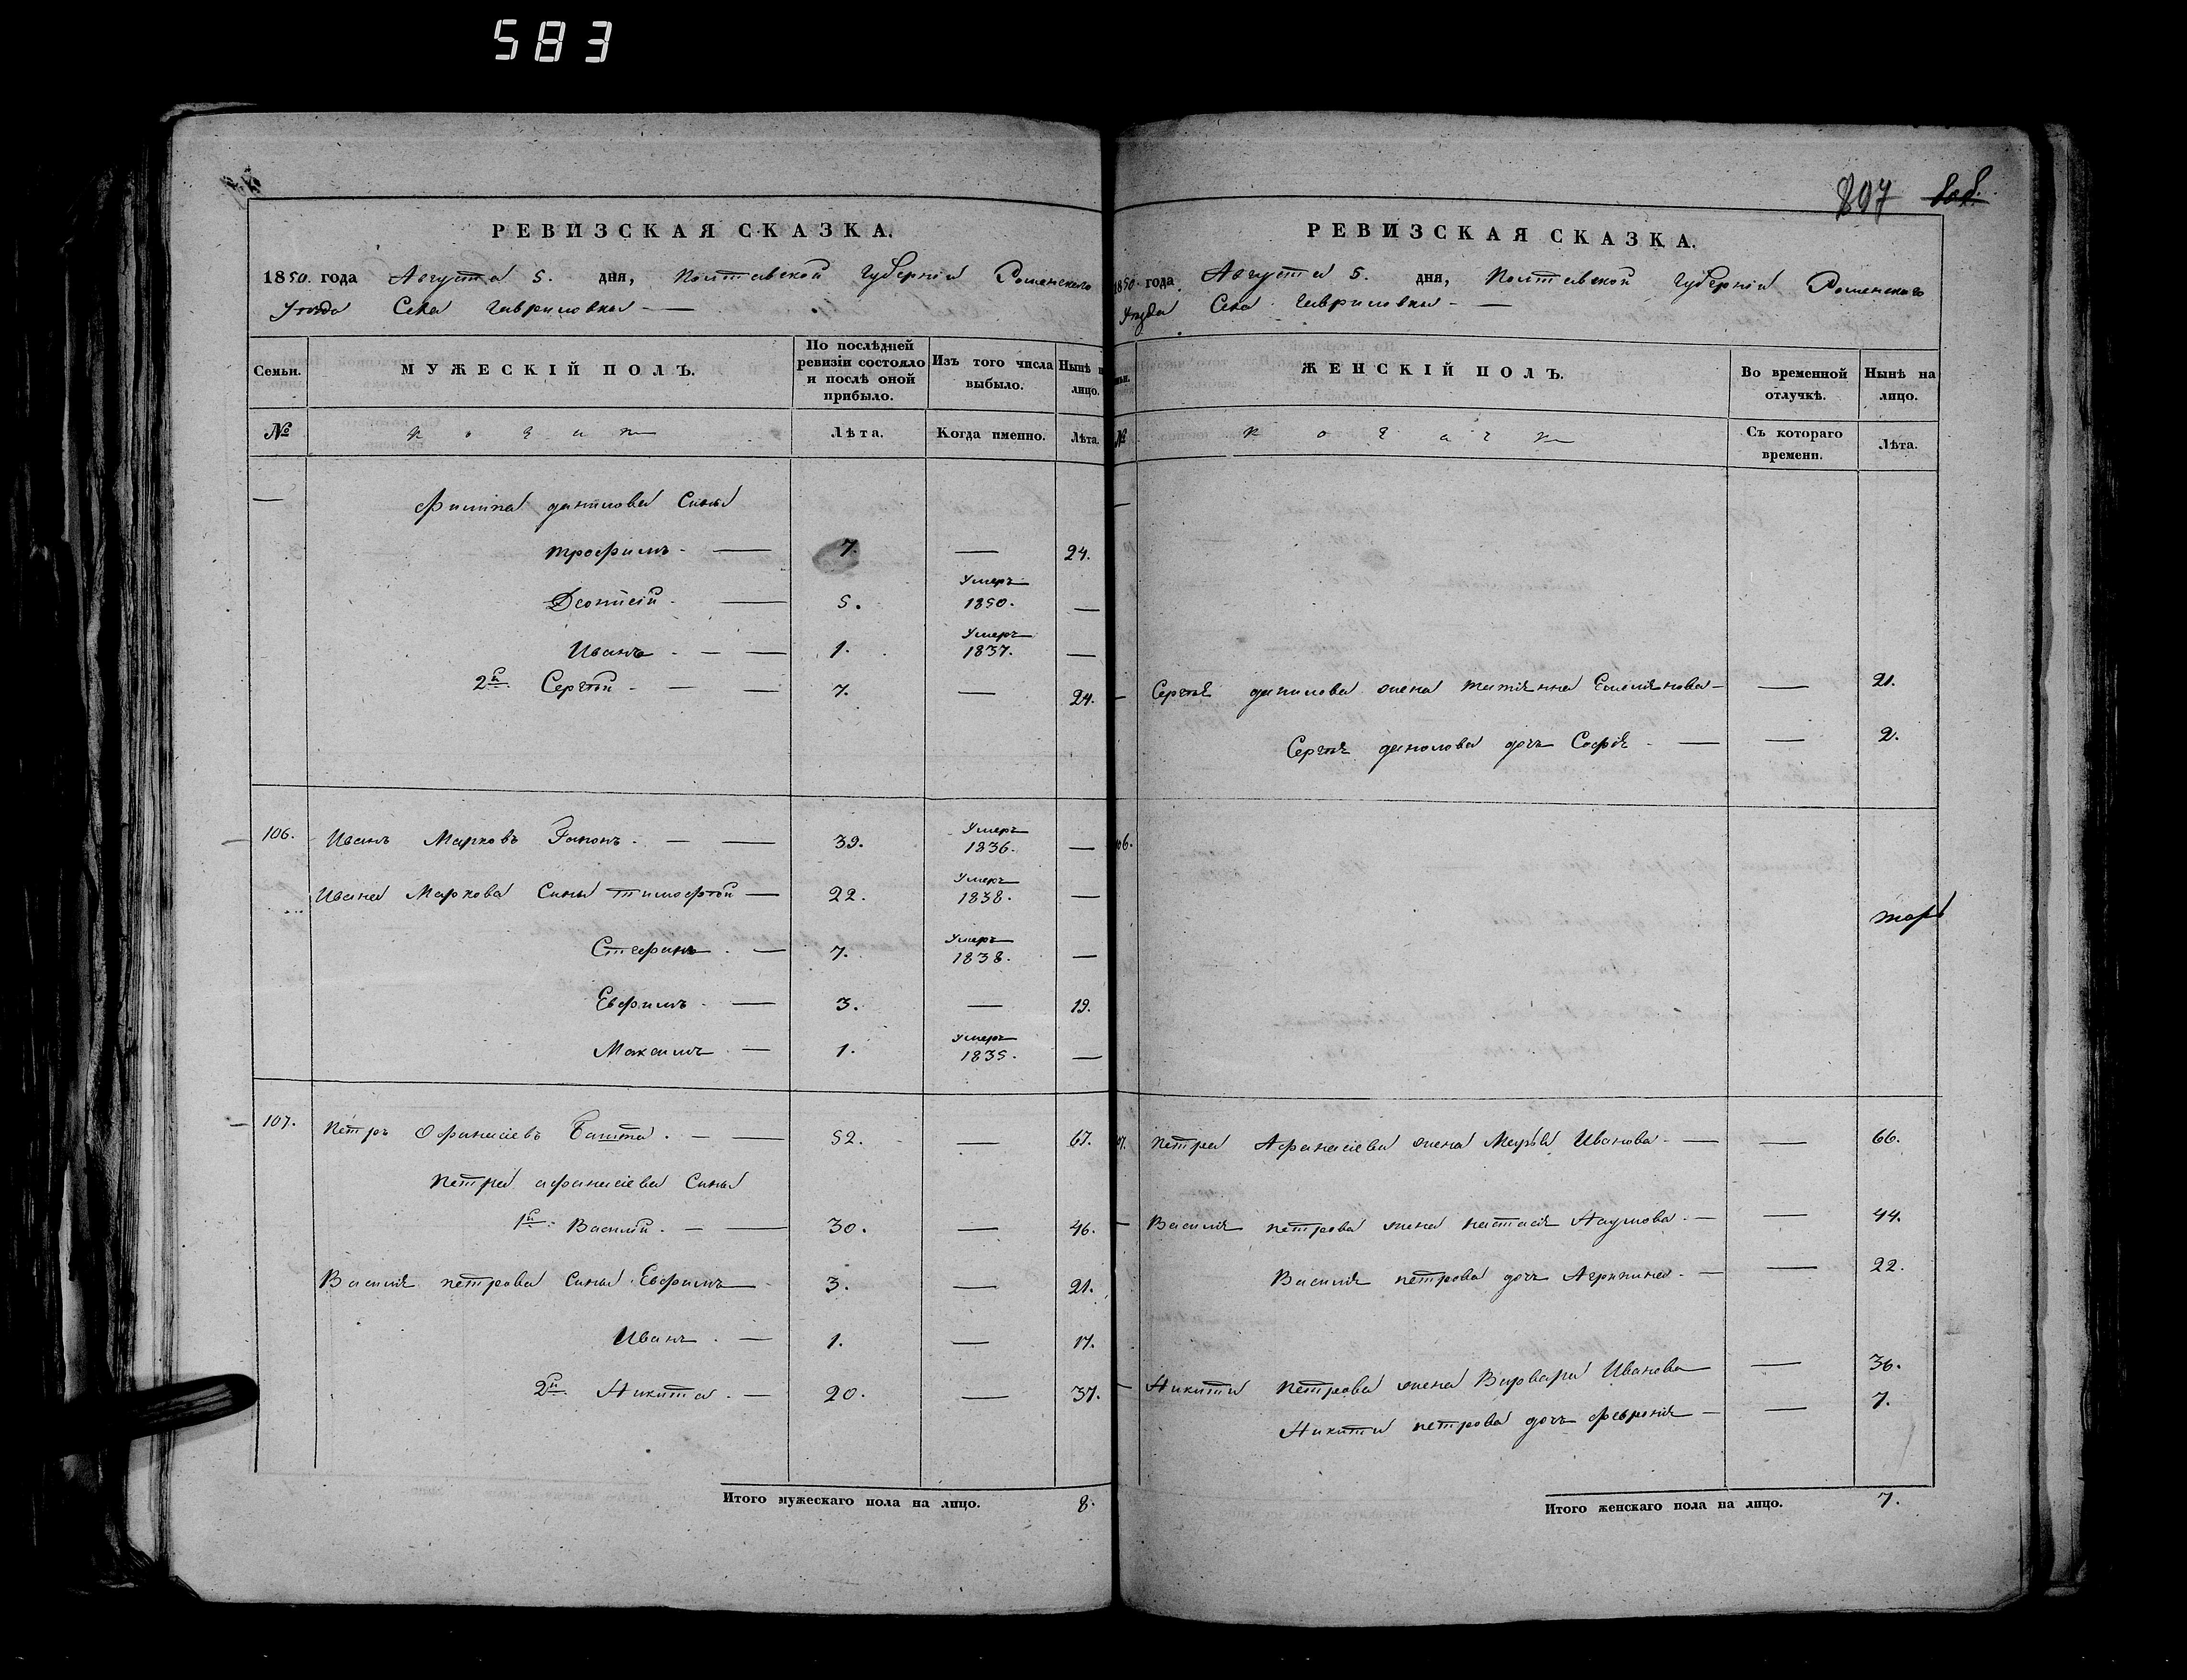 583
РЕВИЗСКАЯ СКАЗКА.
1850. года Августа 5. дня, Полтавской Губерніи Роменскаго
Уѣзда Села Гавриловки —
Семьи.
МУЖЕСКІЙ ПОЛЪ.
По послѣдней ревизіи состояло и послѣ оной прибыло.
Изъ того числа выбыло.
Нынѣ на лицо.
№
Лѣта.
Когда именно.
Лѣта.
— Филипа данилова Сины
трофимъ. — 7. — 24.
Леонтій. — 5. Умеръ 1850. —
Иванъ. — — 1. Умеръ 1837. —
2й. Сергѣй. — — 7. — 24.
106. Иванъ Марковъ Гапонъ. — — 39. Умеръ 1836. —
Ивана Маркова Сины тимофѣй — 22. Умеръ 1838. —
Стефанъ. — 7. Умеръ 1838. —
Евфимъ. — 3. — 19.
Максимъ. — 1. Умеръ 1835. —
107. Петръ Офанасіевъ Башта. — — 52. — 67.
Петра афанасіева Сины
1й. Василій. — — 30. — 46.
Василія петрова Сины Евфимъ — 3. — 21.
Иванъ. — 1. — 17.
2й. Никита. — 20. — 37.
Итого мужескаго пола на лицо. 8.
807
РЕВИЗСКАЯ СКАЗКА.
1850. года Августа 5. дня, Полтавской Губерніи Роменскаго
Уѣзда Села Гавриловки —
ЖЕНСКІЙ ПОЛЪ.
Во временной отлучкѣ.
Нынѣ на лицо.
№
Съ котораго времени.
Лѣта.
— Сергѣя данилова жена татіяна Емеліянова — — 21.
Сергѣя данилова дочъ Софія. — — 2.
106.
107. Петра Афанасіева жена Марѳа Иванова. — — 66.
— Василія петрова жена настасія Наумова. — — 44.
Василія петрова дочъ Агрипина. — — 22.
— Никиты Петрова жена Варвара Иванова — 36.
Никиты петрова дочъ февронія — — 7.
Итого женскаго пола на лицо. 7.